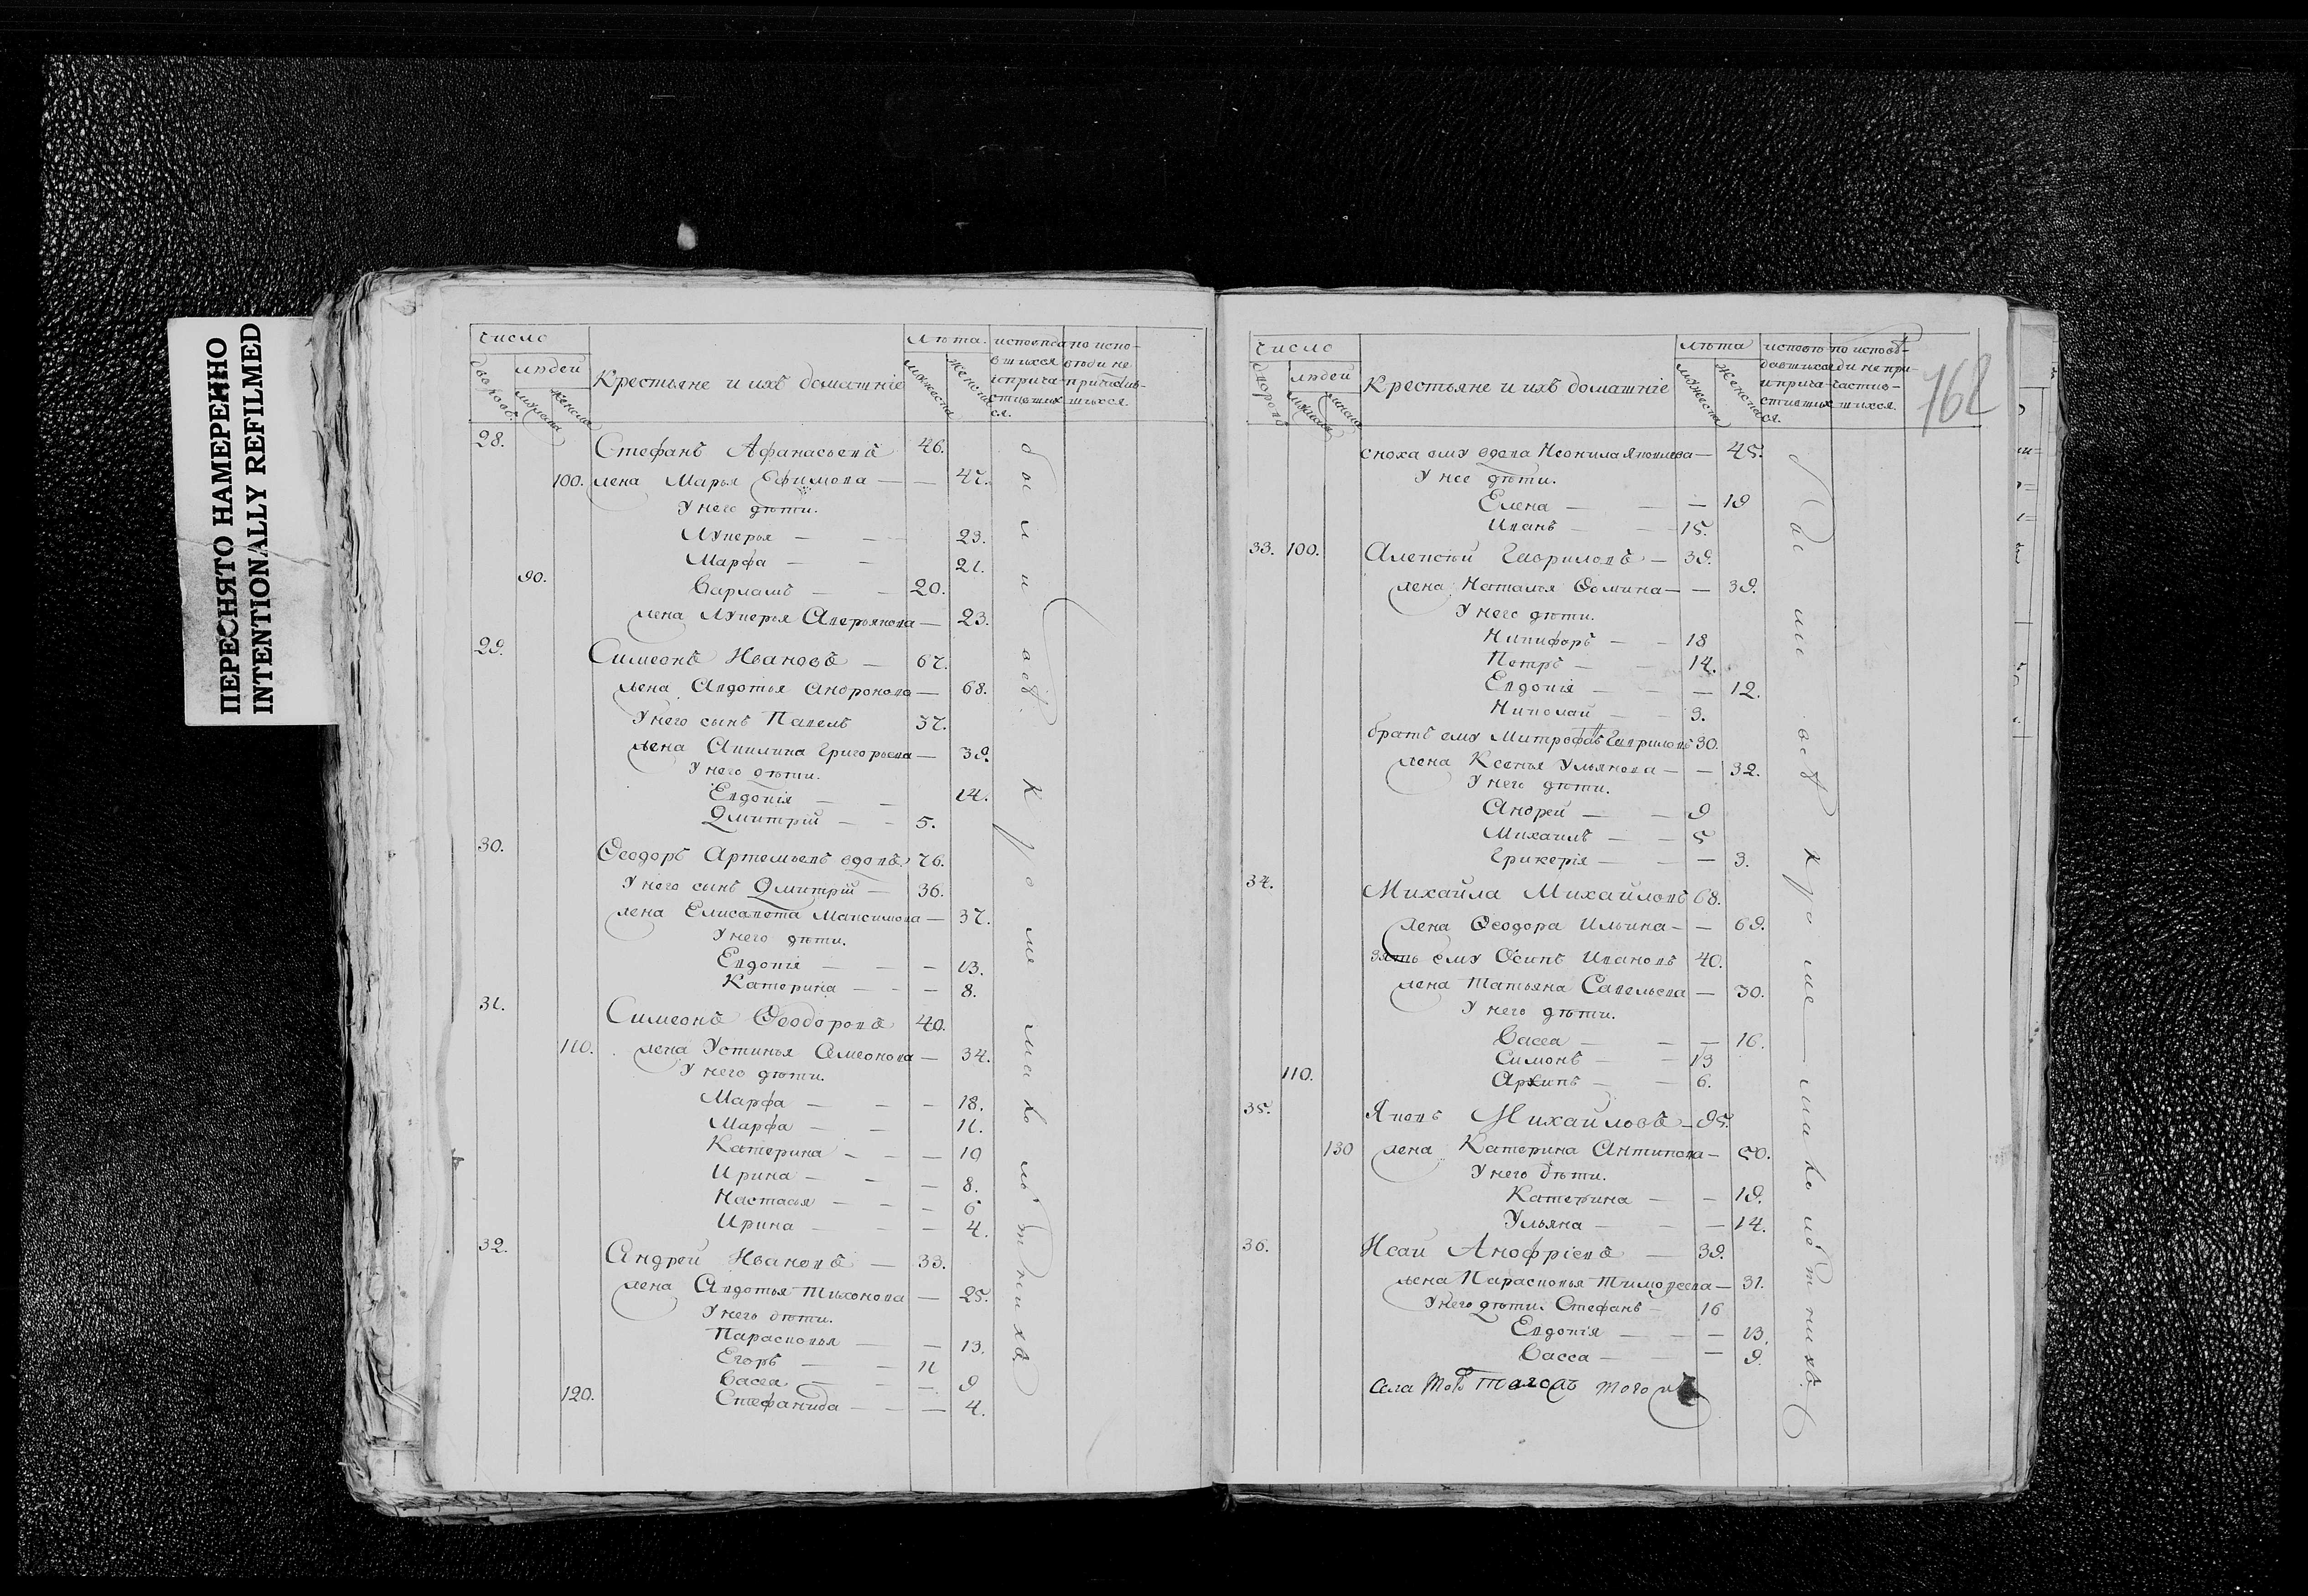 ПЕРЕСНЯТО НАМЕРЕННО
INTENTIONALLY REFILMED
число
людей
Крестьяне и ихъ домашніе
лѣта.
28. Стефанъ Афанасьевъ 46.
100. жена Марья Ефимова — — 47.
У него дѣти.
Лукерья — — 23.
Марфа — — 21.
90. Варламъ — — 20.
жена Лукерья Аверьянова — 23.
29. Симеонъ Ивановъ — 67.
жена Авдотья Андронова — 68.
У него сынъ Павелъ 37.
жена Акилина Григорьева — 39.
У него дѣти.
Евдокія — — 14.
Дмитрій — — 5.
30. Ѳеодоръ Артемьевъ вдовъ 76.
У него сынъ Дмитрій — 36.
жена Елисавета Максимова — 37.
У него дѣти.
Евдокія — — — 13.
Катерина — — — 8.
31. Симеонъ Ѳеодоровъ 40.
110. жена Устинья Симеонова — 34.
У него дѣти.
Марфа — — — 18.
Марфа — — — 11.
Катерина — — — 10
Ирина — — — 8.
Настасья — — — 6
Ирина — — — 4.
32. Андрей Ивановъ — 33.
жена Авдотья Тихонова — 25.
У него дѣти.
Парасковья — — 13.
Егоръ — — 11
Васса — — — 9
120. Стефанида — — — 4.
были всѣ кромѣ малолѣтнихъ
число
людей
Крестьяне и ихъ домашніе
лѣта
762
сноха ему вдова Неонила Яковлева — 45.
У нее дѣти.
Елена — — — 19
Иванъ — — 15.
33. 100. Алексѣй Гавриловъ — 39.
жена Наталья Ѳомина — — 39.
У него дѣти.
Никифоръ — — 18
Петръ — — 14.
Евдокія — — — 12.
Николай — — 9.
братъ ему Митрофанъ Гавриловъ 30.
жена Ксенья Ульянова — — 32.
У него дѣти.
Андрей — — 9
Михаилъ — — 5
Гликерія — — — 3.
34. Михайла Михайловъ 68.
жена Ѳеодора Ильина — — 69.
зять ему Осипъ Ивановъ 40.
жена Татьяна Савельева — 30.
У него дѣти.
Васса — — — 16.
Симонъ — — 13
110. Архипъ — — 6.
35. Яковъ Михайловъ —
130 жена Катерина Антипова — 50.
У него дѣти.
Катерина — — 19.
Ульяна — — — 14.
36. Исай Анофріевъ — 39.
жена Парасковья Тимоѳеева — 31.
У него дѣти. Стефанъ — 16
Евдокія — — — 13.
Васса — — — 9.
были всѣ кромѣ — малолѣтнихъ.
села того